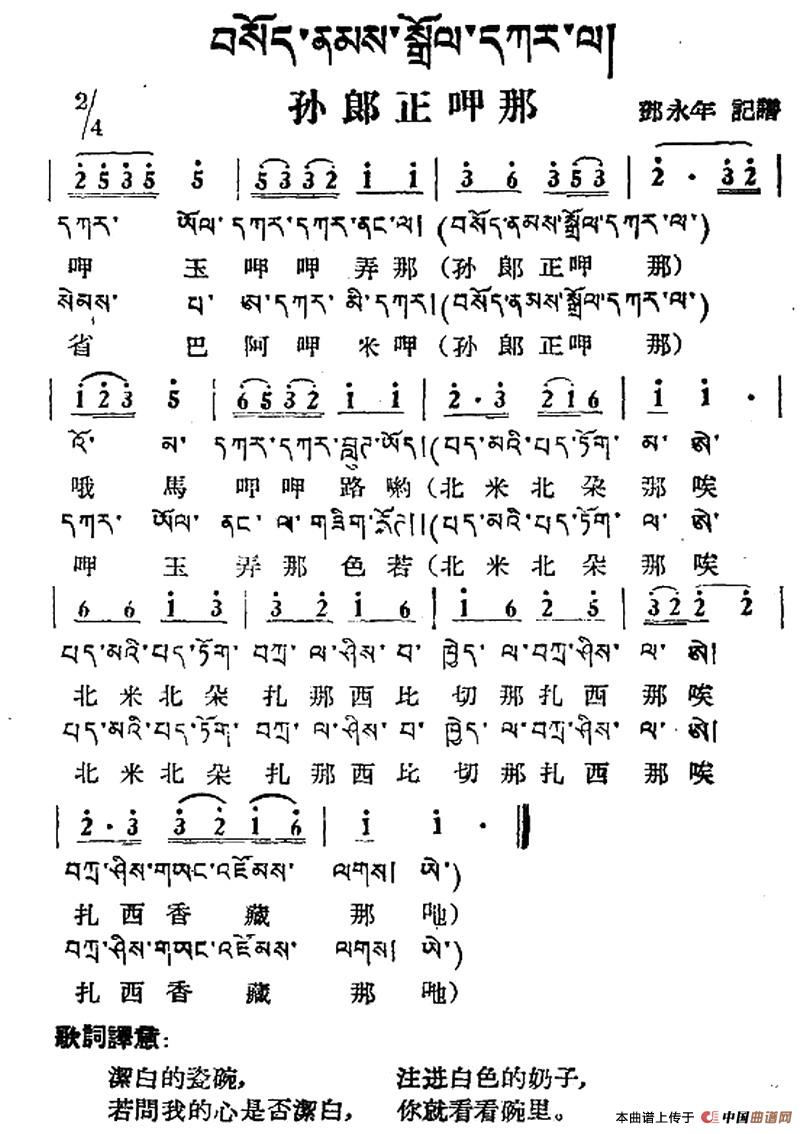 བསོད་ནམས་སྒྲོལ་དཀར་ལ།
2/4 孙郎正呷那 鄧永年 記譜
2 5 3 5 5 | 5 3 3 2 1 1 | 3 6 3 5 3 | 2 · 3 2 |
དཀར་ ཨོལ་ དཀར་དཀར་ནང་ལ། (བསོད་ནམས་སྒྲོལ་དཀར་ལ་)
呷 玉 呷 呷 弄 那 (孙 郎 正 呷 那)
སེམས་ པ་ ཨ་དཀར་ མི་དཀར། (བསོད་ནམས་སྒྲོལ་དཀར་ལ་)
省 巴 阿 呷 米 呷 (孙 郎 正 呷 那)
1 2 3 5 | 6 5 3 2 1 1 | 2 · 3 2 1 6 | 1 1 · |
འོ་ མ་ དཀར་དཀར་བླུཊ་ཡོད། (པད་མའི་པད་ཏོག་ མ་ ཨེ་
哦 馬 呷 呷 路 喲 (北 米 北 朵 那 唉
དཀར་ ཨོལ་ ནང་ ལ་ གཟིག་རོཊ།། (པད་མའི་པད་ཏོག་ ལ་ ཨེ་
呷 玉 弄 那 色 若 (北 米 北 朵 那 唉
6 6 1 3 | 3 2 1 6 | 1 6 2 5 | 3 2 2 2 |
པད་མའི་པད་ཏོག་ བཀྲ་ ལ་ཤིས་ བ་ ཁྱེད་ ལ་བཀྲ་ཤིས་ ལ་ ཨེ།
北 米 北 朵 扎 那 西 比 切 那 扎 西 那 唉
པད་མའི་པད་ཏོག་ བཀྲ་ ལ་ཤིས་ བ་ ཁྱེད་ ལ་བཀྲ་ཤིས་ ལ་ ཨེ།
北 米 北 朵 扎 那 西 比 切 那 扎 西 那 唉
2 · 3 3 2 1 6 | 1 1 · ‖
བཀྲ་ཤིས་གཡང་འཛོམས་ ལགས། ཨེ་)
扎 西 香 藏 那 吔)
བཀྲ་ཤིས་གཡང་འཛོམས་ ལགས། ཨེ་)
扎 西 香 藏 那 吔)
歌詞譯意:
潔白的瓷碗, 注进白色的奶子,
若問我的心是否潔白, 你就看看碗里。
本曲谱上传于 中国曲谱网